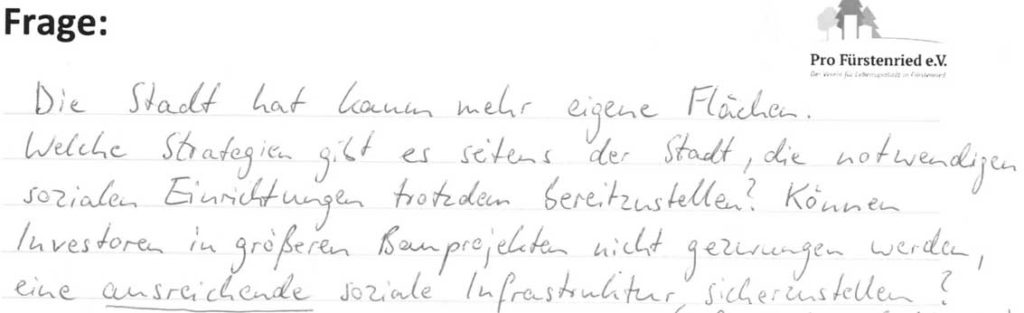 Frage:
Pro Fürstenried e.V.
Der Verein für Lebensqualität in Fürstenried
Die Stadt hat kaum mehr eigene Flächen.
Welche Strategien gibt es seitens der Stadt, die notwendigen
sozialen Einrichtungen trotzdem bereitzustellen? Können
Investoren in größeren Bauprojekten nicht gezwungen werden,
eine ausreichende soziale Infrastruktur sicherzustellen?